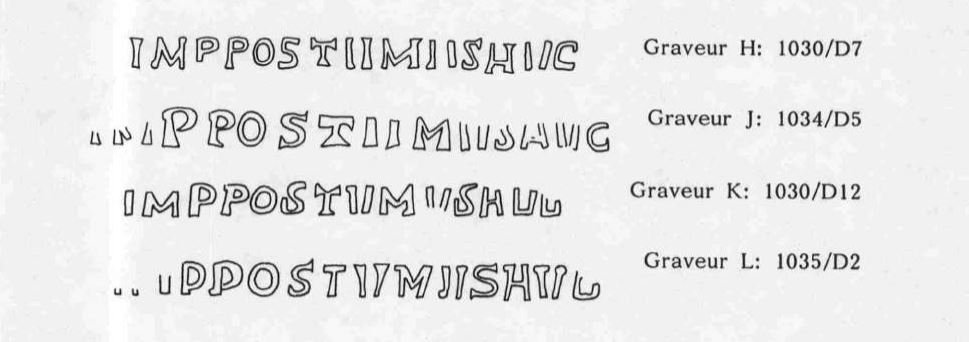 IMPPOSTIIMIISHIIC Graveur H: 1030/D7
PPOSTIIMIIISAIIIC Graveur J: 1034/D5
IMPPOSTIIMIIISHUU Graveur K: 1030/D12
PPOSTIIMIIISHIIC Graveur L: 1035/D2